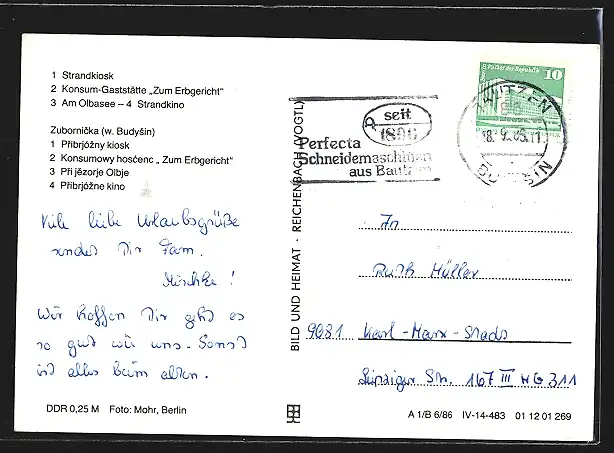 1 Strandkiosk
2 Konsum-Gaststätte „Zum Erbgericht"
3 Am Olbasee – 4 Strandkino
Zubornička (w. Budyšin)
1 Přibrjóžny kiosk
2 Konsumowy hosćenc „Zum Erbgericht"
3 Při jězorje Olbje
4 Přibrjóžne kino
Viele liebe Urlaubsgrüße
sendet Dir Fam.
Mischke!
Wir hoffen Dir geht es
so gut wie uns. Sonst
ist alles beim alten.
DDR 0,25 M Foto: Mohr, Berlin
BILD UND HEIMAT · REICHENBACH (VOGTL)
seit
1896
Perfecta
Schneidemaschinen
aus Bautzen
Palast der Republik 10
BAUTZEN
BUDYŠIN
An
Ruth Müller
9081 Karl-Marx-Stadt
Leipziger Str. 167 III WG 311
A 1/B 6/86 IV-14-483 01 12 01 269